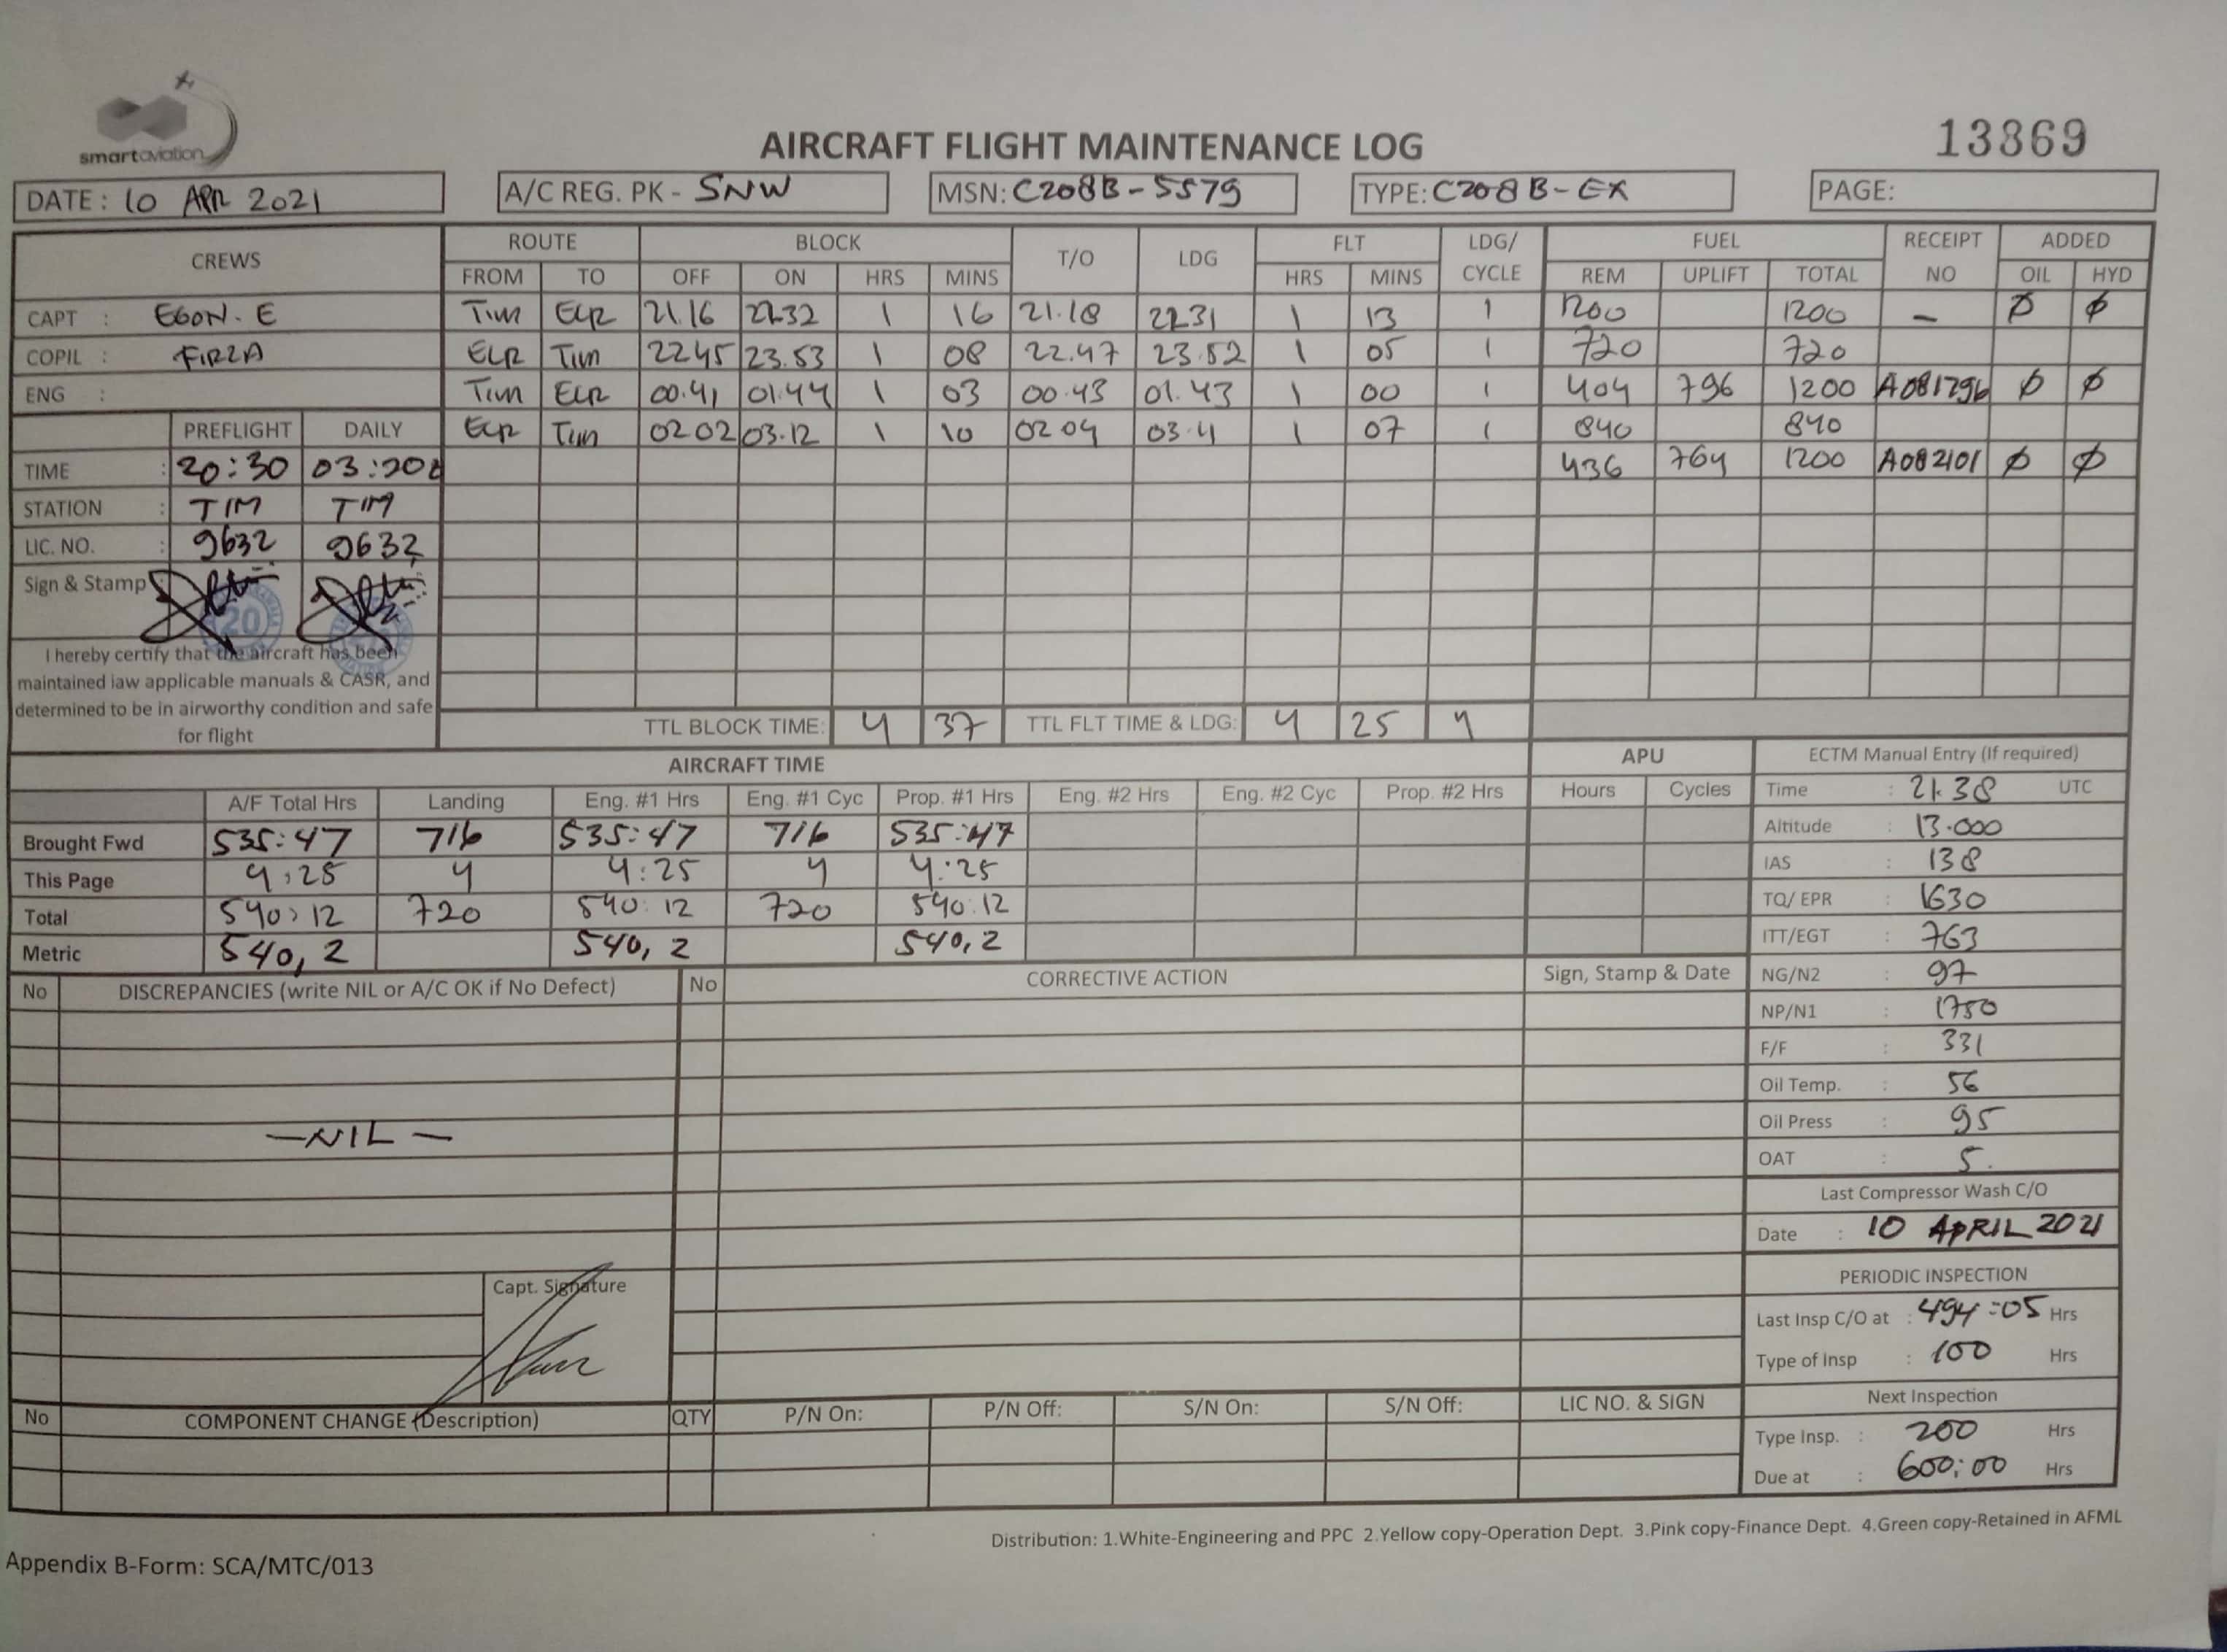 smartaviation
AIRCRAFT FLIGHT MAINTENANCE LOG
13869
DATE : 10 APR 2021 A/C REG. PK - SNW MSN: C208B-5579 TYPE: C208B-EX PAGE:
CREWS ROUTE BLOCK T/O LDG FLT LDG/ CYCLE FUEL RECEIPT NO ADDED
FROM TO OFF ON HRS MINS HRS MINS REM UPLIFT TOTAL OIL HYD
CAPT : EGON. E Tim 21.16 2232 1 16 21.18 2231 1 13 1 1200 1200 – Ø Ø
COPIL : FIRZA Tim 2245 23.53 1 08 22.47 23.52 1 05 1 720 720
ENG : Tim 00.41 01.44 1 03 00.43 01.43 1 00 1 404 796 1200 A081296 Ø Ø
PREFLIGHT DAILY Tim 02 02 03.12 1 10 02 04 03.11 1 07 1 840 840
TIME : 20:30 03:20 436 764 1200 A082101 Ø Ø
STATION : TIM TIM
LIC. NO. : 9632 9632
Sign & Stamp
20
I hereby certify that the aircraft has been
maintained iaw applicable manuals & CASR, and
determined to be in airworthy condition and safe
for flight
TTL BLOCK TIME: 4 37 TTL FLT TIME & LDG: 4 25 4
AIRCRAFT TIME APU ECTM Manual Entry (If required)
A/F Total Hrs Landing Eng. #1 Hrs Eng. #1 Cyc Prop. #1 Hrs Eng. #2 Hrs Eng. #2 Cyc Prop. #2 Hrs Hours Cycles Time : 21.38 UTC
Brought Fwd 535:47 716 535:47 716 535:47 Altitude : 13.000
This Page 4:25 4 4:25 4 4:25 IAS : 138
Total 540:12 720 540:12 720 540:12 TQ/ EPR : 1630
Metric 540,2 540,2 540,2 ITT/EGT : 763
No DISCREPANCIES (write NIL or A/C OK if No Defect) No CORRECTIVE ACTION Sign, Stamp & Date NG/N2 : 97
NP/N1 : 1750
F/F : 331
Oil Temp. : 56
—NIL— Oil Press : 95
OAT : 5.
Last Compressor Wash C/O
Date : 10 APRIL 2021
PERIODIC INSPECTION
Capt. Signature
Last Insp C/O at : 494:05 Hrs
Type of Insp : 100 Hrs
Next Inspection
No COMPONENT CHANGE (Description) QTY P/N On: P/N Off: S/N On: S/N Off: LIC NO. & SIGN
Type Insp. : 200 Hrs
Due at : 600:00 Hrs
Distribution: 1.White-Engineering and PPC 2.Yellow copy-Operation Dept. 3.Pink copy-Finance Dept. 4.Green copy-Retained in AFML
Appendix B-Form: SCA/MTC/013